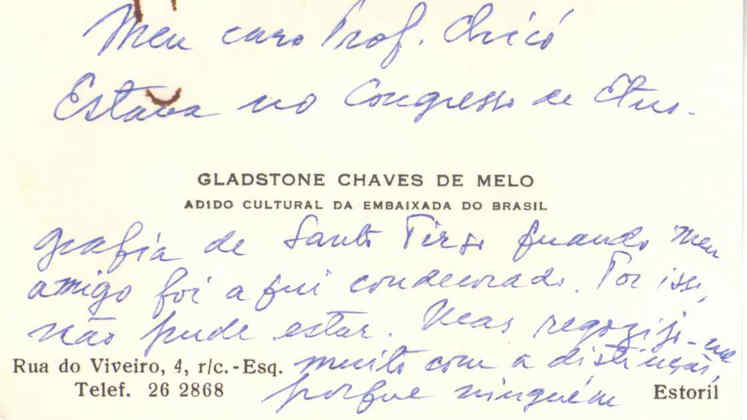 Meu caro Prof. Chicó
Estava no Congresso de Etno-
GLADSTONE CHAVES DE MELO
ADIDO CULTURAL DA EMBAIXADA DO BRASIL
grafia de Santo Tirso quando meu
amigo foi aqui condecorado. Por isso,
não pude estar. Mas regozijo-me
muito com a distinção,
Rua do Viveiro, 4, r/c.-Esq.
porque ninguém
Telef. 26 2868
Estoril